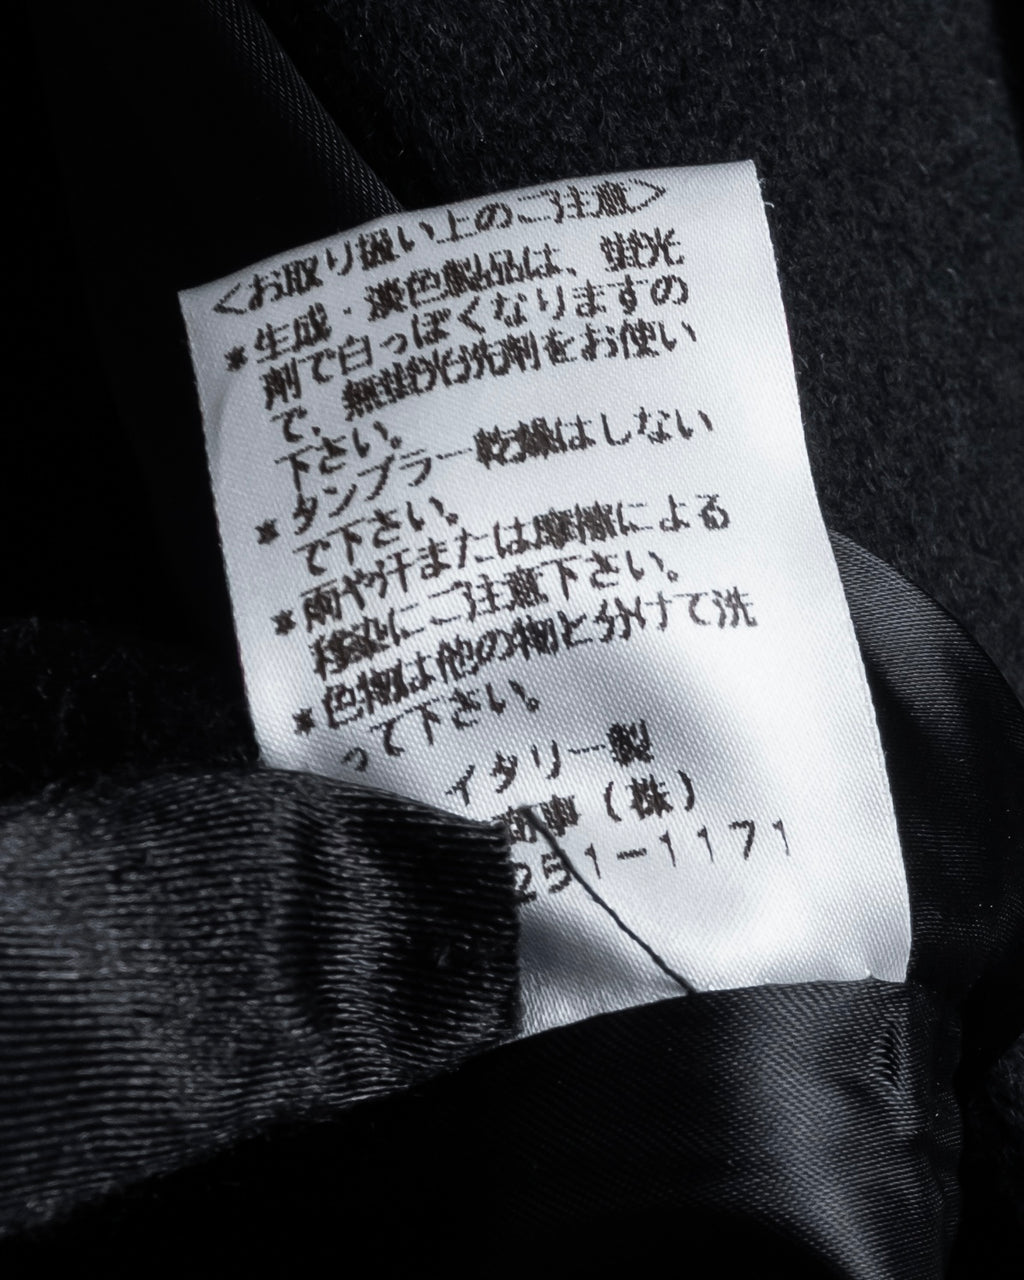 <お取り扱い上のご注意>
*生成・淡色製品は、蛍光
剤で白っぽくなりますの
で、無蛍光洗剤をお使い
下さい。
*タンブラー乾燥はしない
で下さい。
*雨や汗または摩擦による
移染にご注意下さい。
*色物は他の物と分けて洗
って下さい。
イタリー製
商事(株)
251-1171